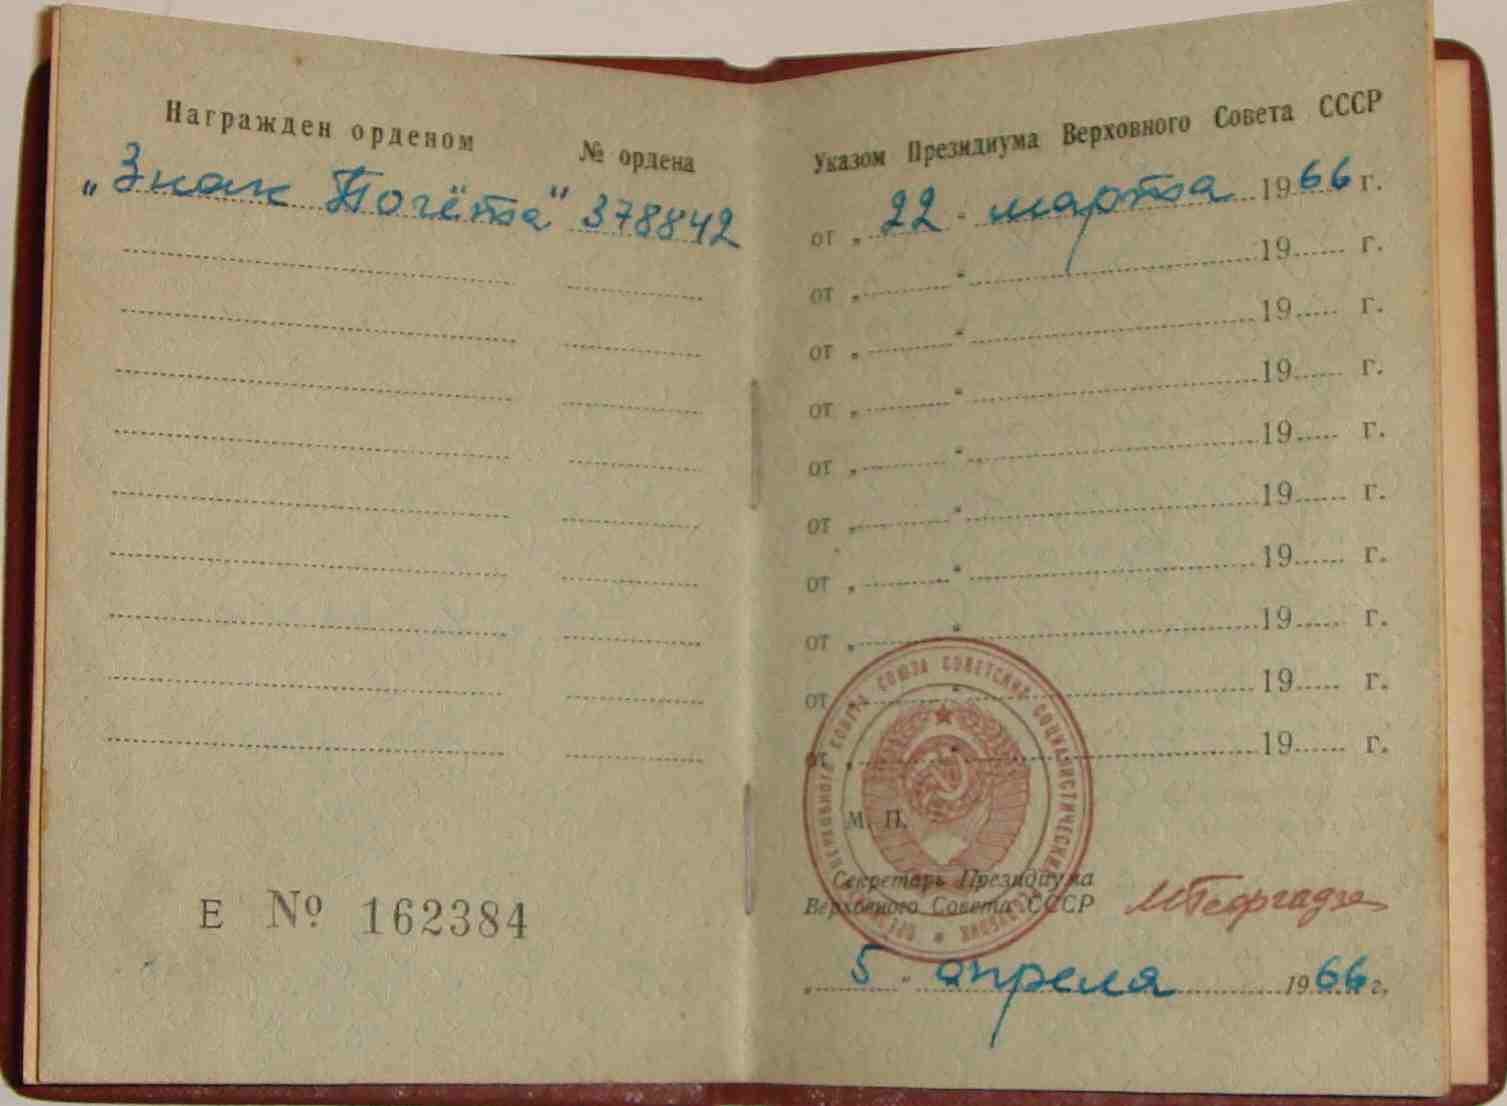 Награжден орденом № ордена
„Знак Почёта“ 378842
Е № 162384
Указом Президиума Верховного Совета СССР
от „22“ марта 1966 г.
от „ “ 19 г.
от „ “ 19 г.
от „ “ 19 г.
от „ “ 19 г.
от „ “ 19 г.
от „ “ 19 г.
от „ “ 19 г.
от „ “ 19 г.
от „ “ 19 г.
М. П.
ПРЕЗИДИУМ ВЕРХОВНОГО СОВЕТА СОЮЗА СОВЕТСКИХ СОЦИАЛИСТИЧЕСКИХ РЕСПУБЛИК
Секретарь Президиума
Верховного Совета СССР МГеоргадзе
„5“ апреля 1966 г.